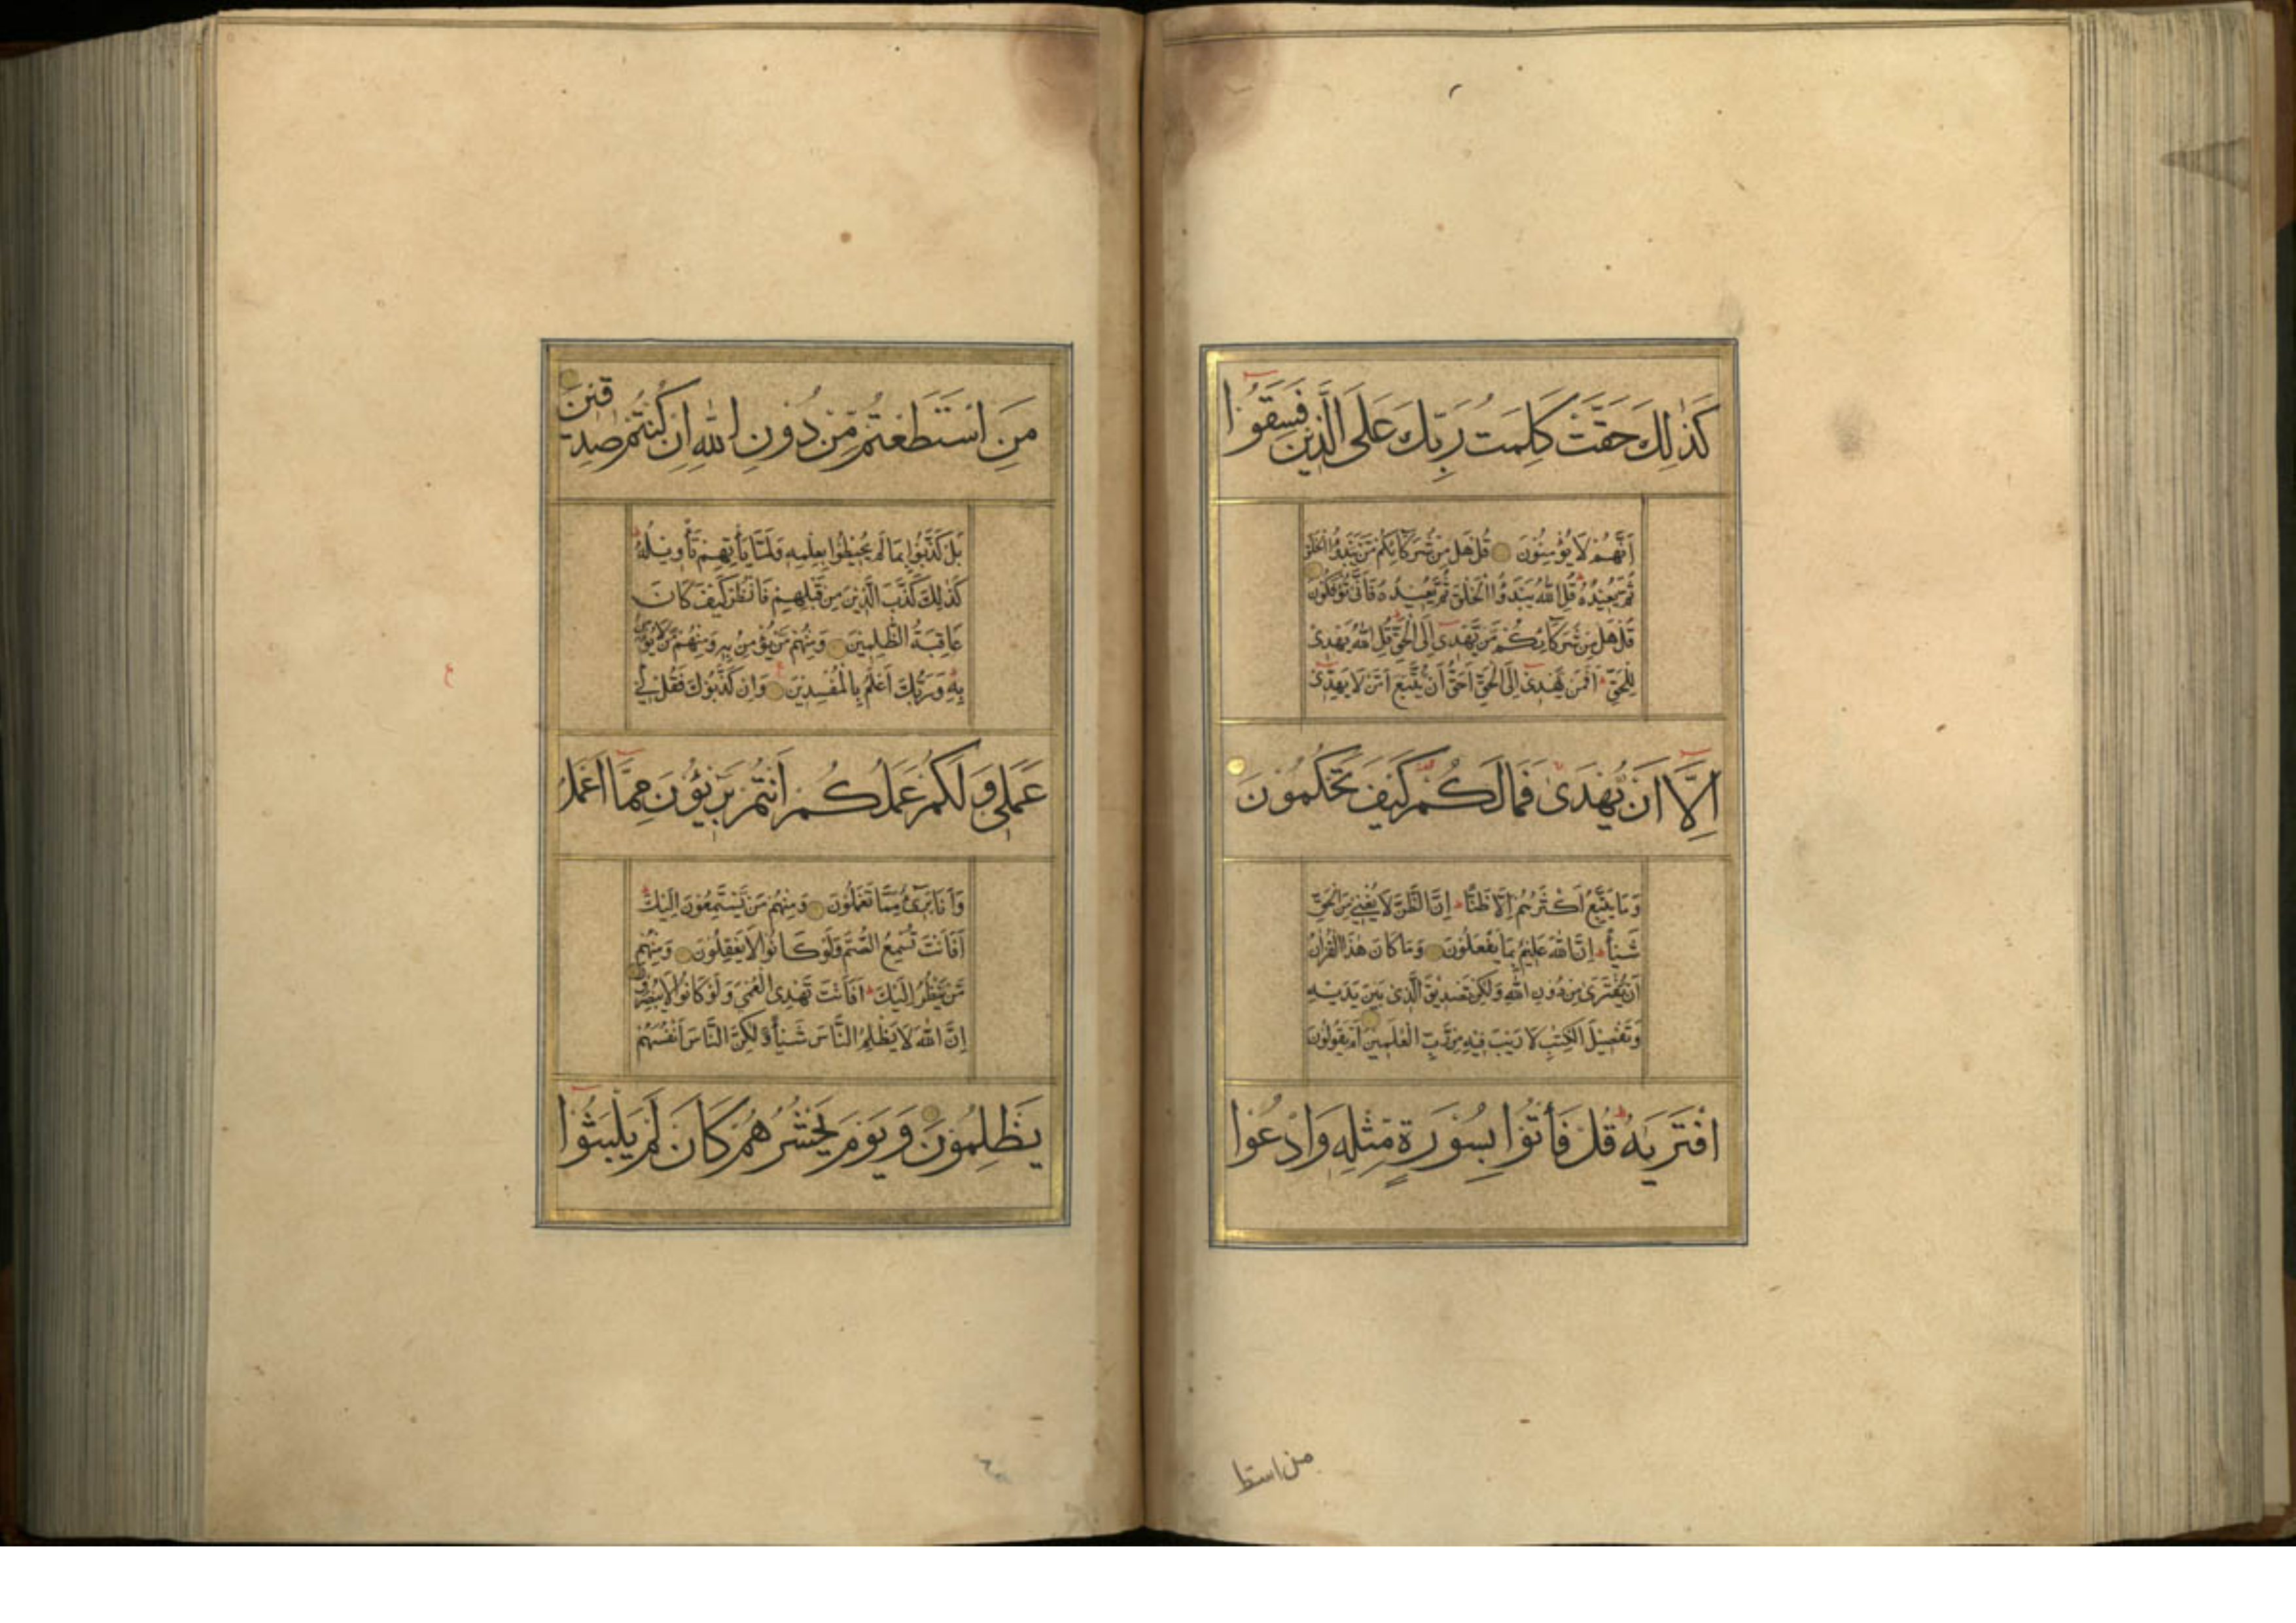 كَذٰلِكَ حَقَّتْ كَلِمَتُ رَبِّكَ عَلَى الَّذِينَ فَسَقُوٓا
اَنَّهُمْ لَا يُؤْمِنُوْنَ قُلْ هَلْ مِنْ شُرَكَآئِكُمْ مَّنْ يَّبْدَؤُا الْخَلْقَ
ثُمَّ يُعِيْدُهُ قُلِ اللّٰهُ يَبْدَؤُا الْخَلْقَ ثُمَّ يُعِيْدُهُ فَاَنّٰى تُؤْفَكُوْنَ
قُلْ هَلْ مِنْ شُرَكَآئِكُمْ مَّنْ يَّهْدِىٓ اِلَى الْحَقِّ قُلِ اللّٰهُ يَهْدِىْ
لِلْحَقِّ اَفَمَنْ يَّهْدِىٓ اِلَى الْحَقِّ اَحَقُّ اَنْ يُّتَّبَعَ اَمَّنْ لَا يَهِدِّىٓ
اِلَّآ اَنْ يُّهْدٰى فَمَا لَكُمْ كَيْفَ تَحْكُمُوْنَ
وَمَا يَتَّبِعُ اَكْثَرُهُمْ اِلَّا ظَنًّا اِنَّ الظَّنَّ لَا يُغْنِىْ مِنَ الْحَقِّ
شَيْئًا اِنَّ اللّٰهَ عَلِيْمٌ بِمَا يَفْعَلُوْنَ وَمَا كَانَ هٰذَا الْقُرْاٰنُ
اَنْ يُّفْتَرٰى مِنْ دُوْنِ اللّٰهِ وَلٰكِنْ تَصْدِيْقَ الَّذِىْ بَيْنَ يَدَيْهِ
وَتَفْصِيْلَ الْكِتٰبِ لَا رَيْبَ فِيْهِ مِنْ رَّبِّ الْعٰلَمِيْنَ اَمْ يَقُوْلُوْنَ
افْتَرٰيهُ قُلْ فَأْتُوْا بِسُوْرَةٍ مِّثْلِهِ وَادْعُوْا
من استطا
مَنِ اسْتَطَعْتُمْ مِّنْ دُوْنِ اللّٰهِ اِنْ كُنْتُمْ صٰدِقِيْنَ
بَلْ كَذَّبُوْا بِمَا لَمْ يُحِيْطُوْا بِعِلْمِهِ وَلَمَّا يَأْتِهِمْ تَأْوِيْلُهُ
كَذٰلِكَ كَذَّبَ الَّذِيْنَ مِنْ قَبْلِهِمْ فَانْظُرْ كَيْفَ كَانَ
عَاقِبَةُ الظّٰلِمِيْنَ وَمِنْهُمْ مَّنْ يُّؤْمِنُ بِهِ وَمِنْهُمْ مَّنْ لَا يُؤْمِنُ
بِهِ وَرَبُّكَ اَعْلَمُ بِالْمُفْسِدِيْنَ وَاِنْ كَذَّبُوْكَ فَقُلْ لِىْ
عَمَلِىْ وَلَكُمْ عَمَلُكُمْ اَنْتُمْ بَرِيْئُوْنَ مِمَّا اَعْمَلُ
وَاَنَا بَرِىْءٌ مِّمَّا تَعْمَلُوْنَ وَمِنْهُمْ مَّنْ يَّسْتَمِعُوْنَ اِلَيْكَ
اَفَاَنْتَ تُسْمِعُ الصُّمَّ وَلَوْ كَانُوْا لَا يَعْقِلُوْنَ وَمِنْهُمْ
مَّنْ يَّنْظُرُ اِلَيْكَ اَفَاَنْتَ تَهْدِى الْعُمْىَ وَلَوْ كَانُوْا لَا يُبْصِرُوْنَ
اِنَّ اللّٰهَ لَا يَظْلِمُ النَّاسَ شَيْئًا وَّلٰكِنَّ النَّاسَ اَنْفُسَهُمْ
يَظْلِمُوْنَ وَيَوْمَ يَحْشُرُهُمْ كَاَنْ لَّمْ يَلْبَثُوٓا
ع